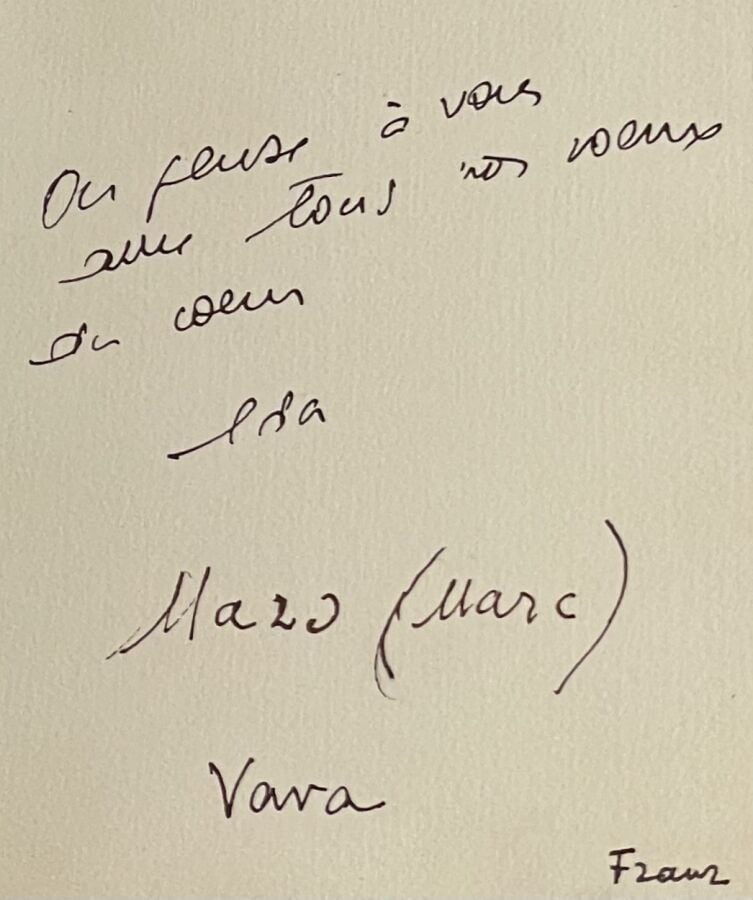 On pense à vous
avec tous nos voeux
du coeur
Isa
Mazo (Marc)
Vava
Franz